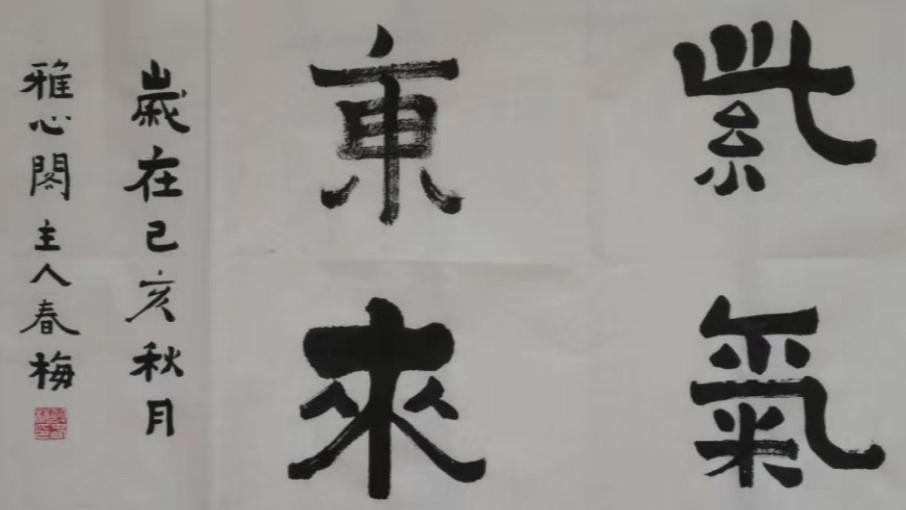 紫氣
東來
歲在己亥秋月
雅心閣主人春梅